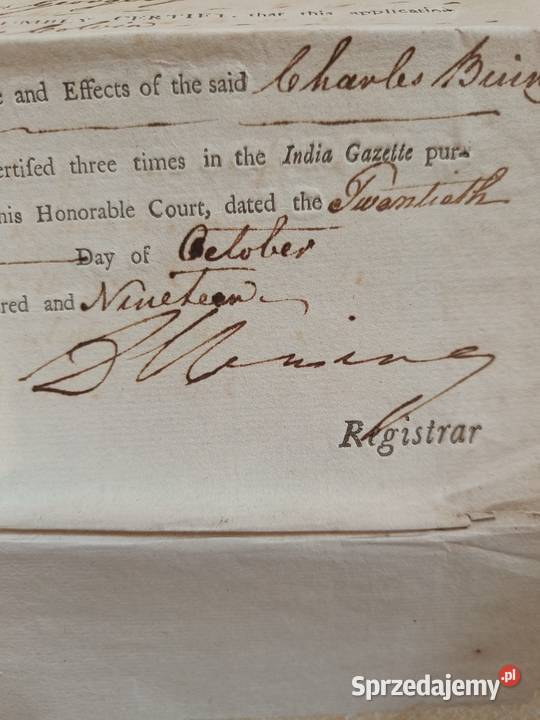 CERTIFY, that this application
e and Effects of the said Charles
ertised three times in the India Gazette pur-
his Honorable Court, dated the Twentieth
Day of October
red and Nineteen
Registrar
Sprzedajemy.pl